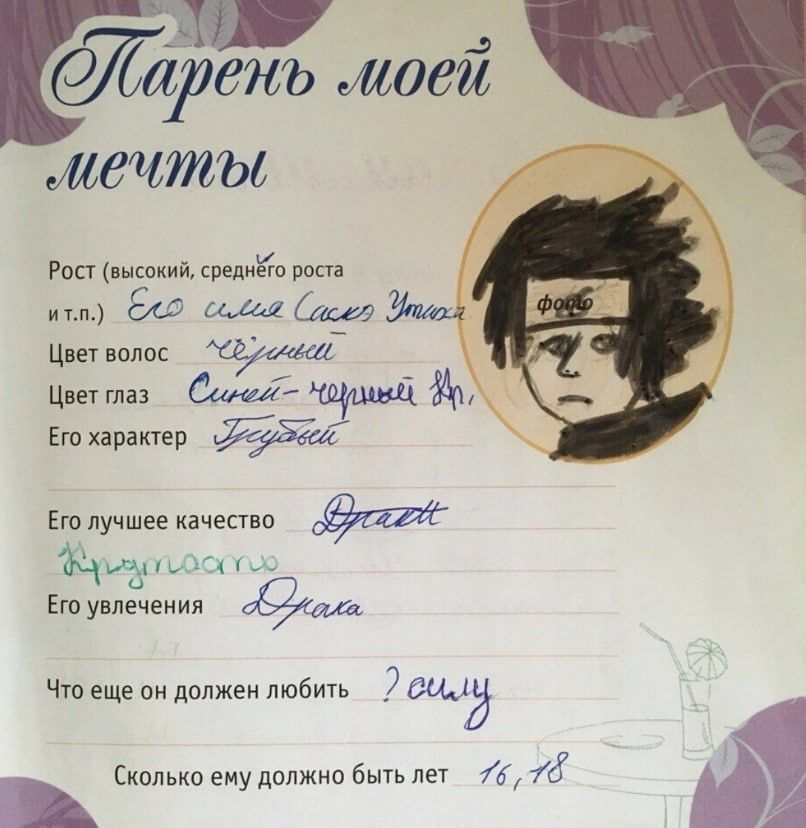 Парень моей
мечты
Рост (высокий, среднего роста
и т.п.) Его имя Саскэ Утиха
фото
Цвет волос чёрный
Цвет глаз Синей-черный Кр,
Его характер Грубый
Его лучшее качество Драки
Крутость
Его увлечения Драка
Что еще он должен любить ? силу
Сколько ему должно быть лет 16, 18